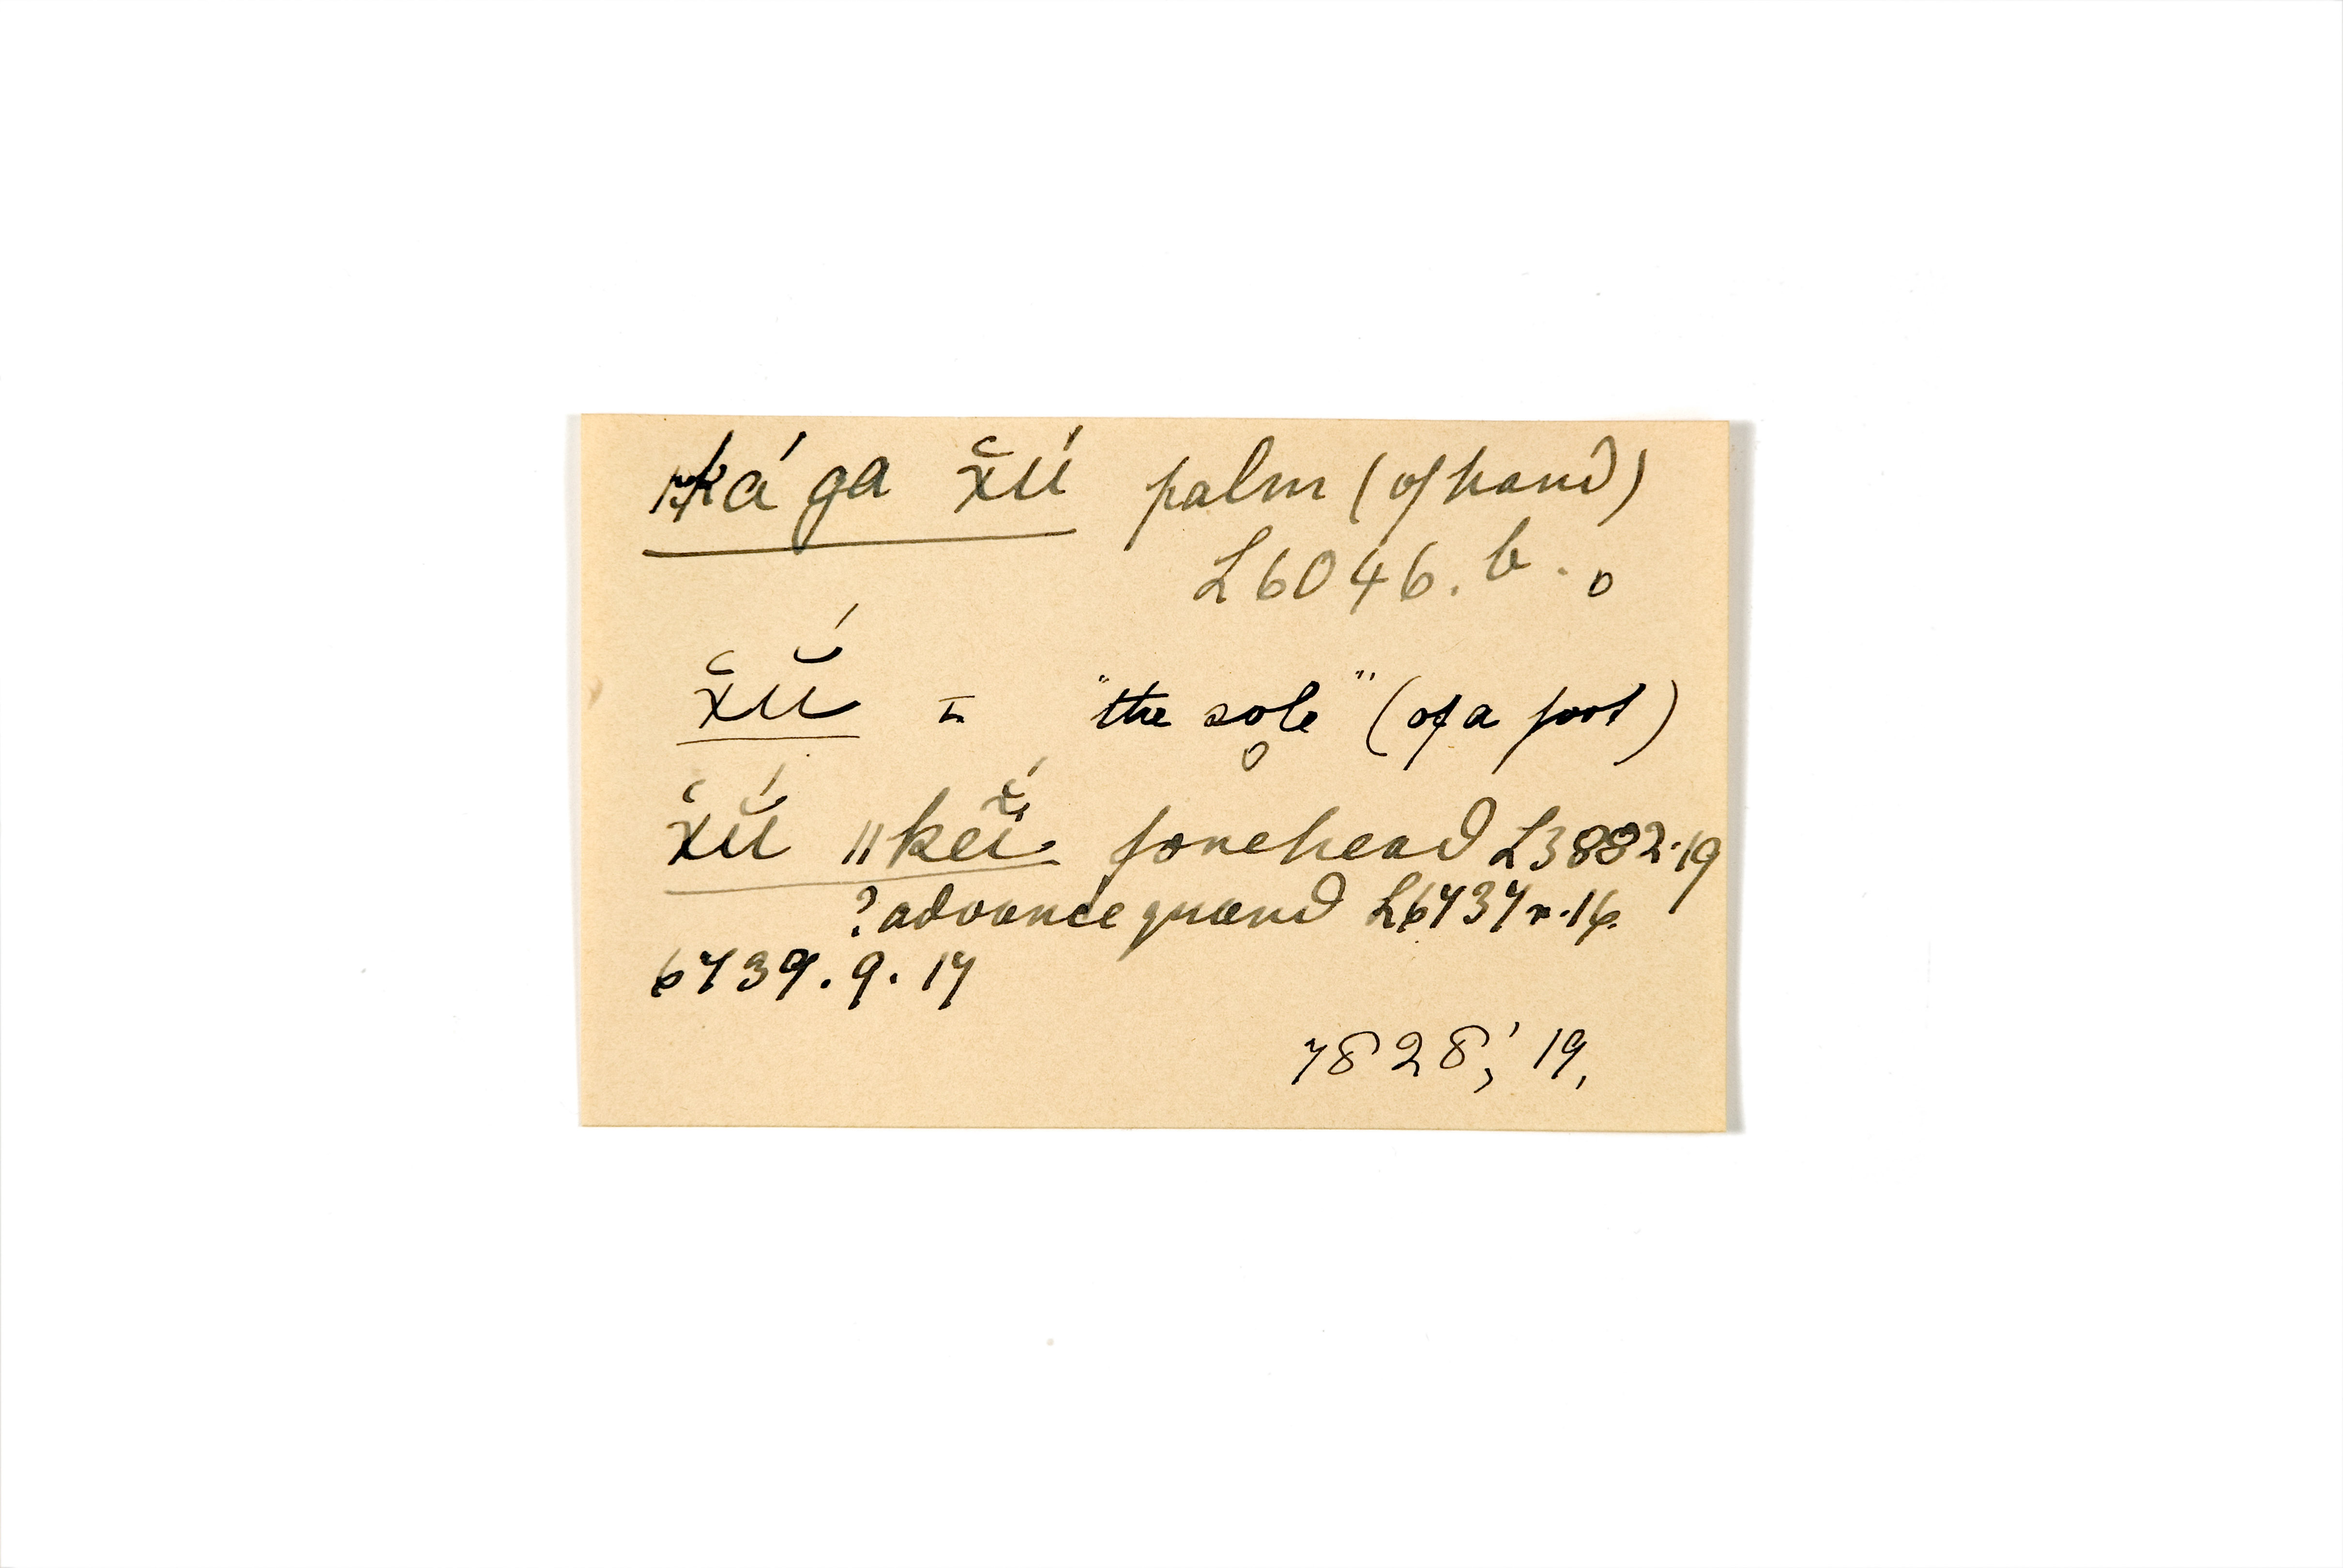 ká ga x̆ú palm (of hand)
L6046. b. o
x̆ŭ́ = "the sole" (of a foot)
x̆ŭ́ ǁkeĭ́ forehead L3882.19
? advance guard L6737 r. 16.
6739. 9. 17
7828,' 19,